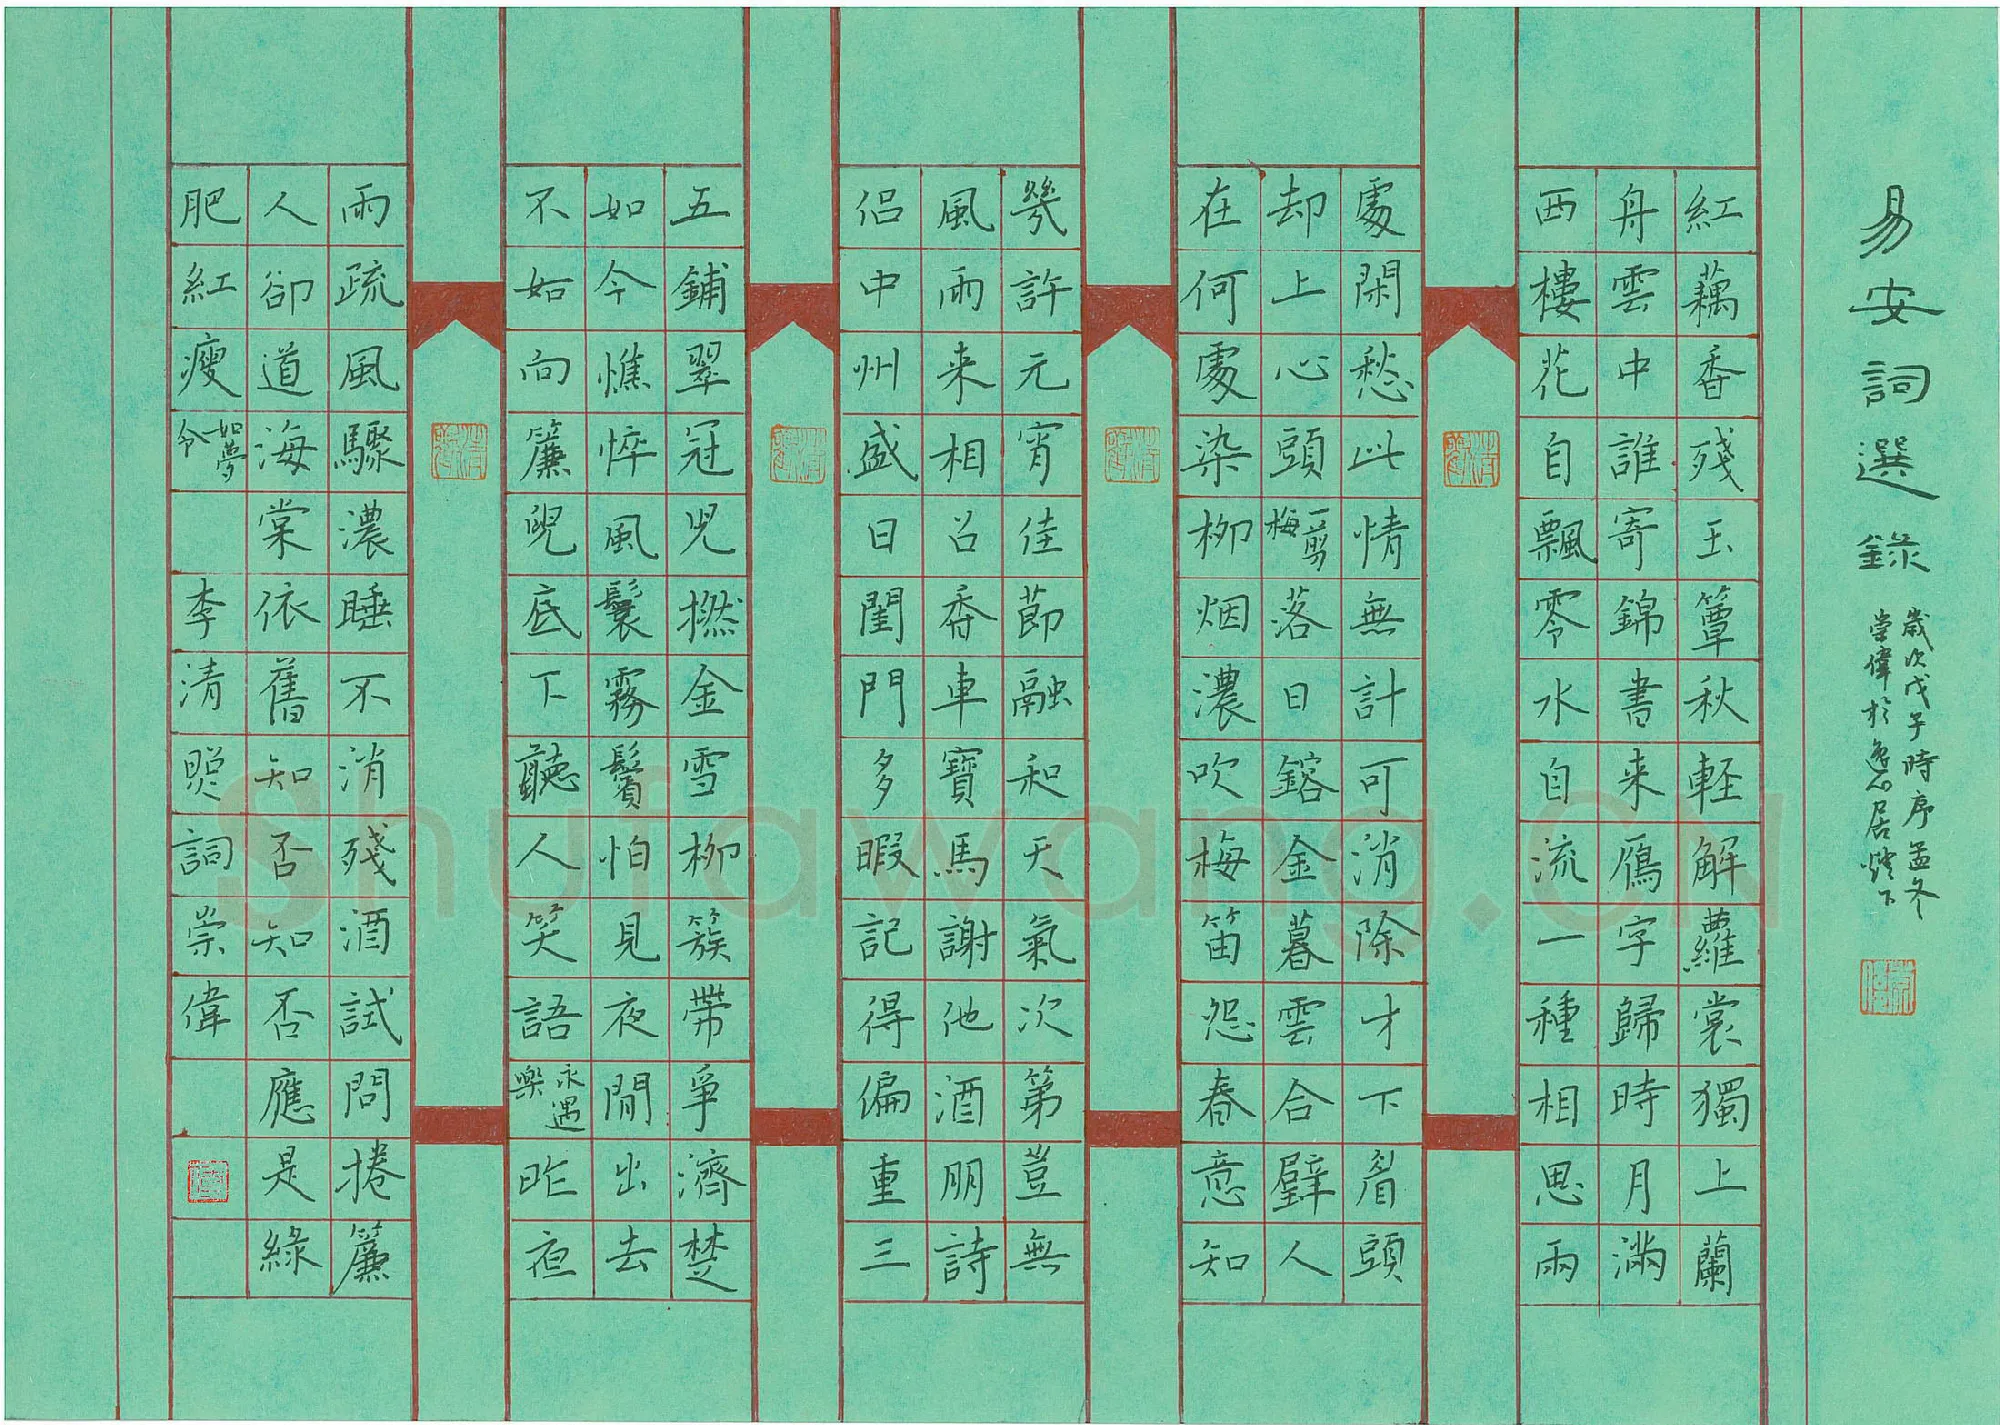 易安詞選錄
歲次戊子時序孟冬
崇偉於逸居燈下
紅藕香殘玉簟秋軽解蘿裳獨上蘭
舟雲中誰寄錦書来鴈字歸時月滿
西樓花自飄零水自流一種相思兩
處閑愁此情無計可消除才下眉頭
却上心頭一剪梅落日鎔金暮雲合璧人
在何處染柳烟濃吹梅笛怨春意知
幾許元宵佳節融和天氣次第豈無
風雨来相召香車寶馬謝他酒朋詩
侶中州盛日閨門多暇記得偏重三
五鋪翠冠兒撚金雪柳簇帶爭濟楚
如今憔悴風鬟霧鬢怕見夜間出去
不如向簾兒底下聽人笑語永遇樂昨夜
雨疏風驟濃睡不消殘酒試問捲簾
人卻道海棠依舊知否知否應是綠
肥紅瘦如夢令 李清照詞崇偉
Shufawang.CN